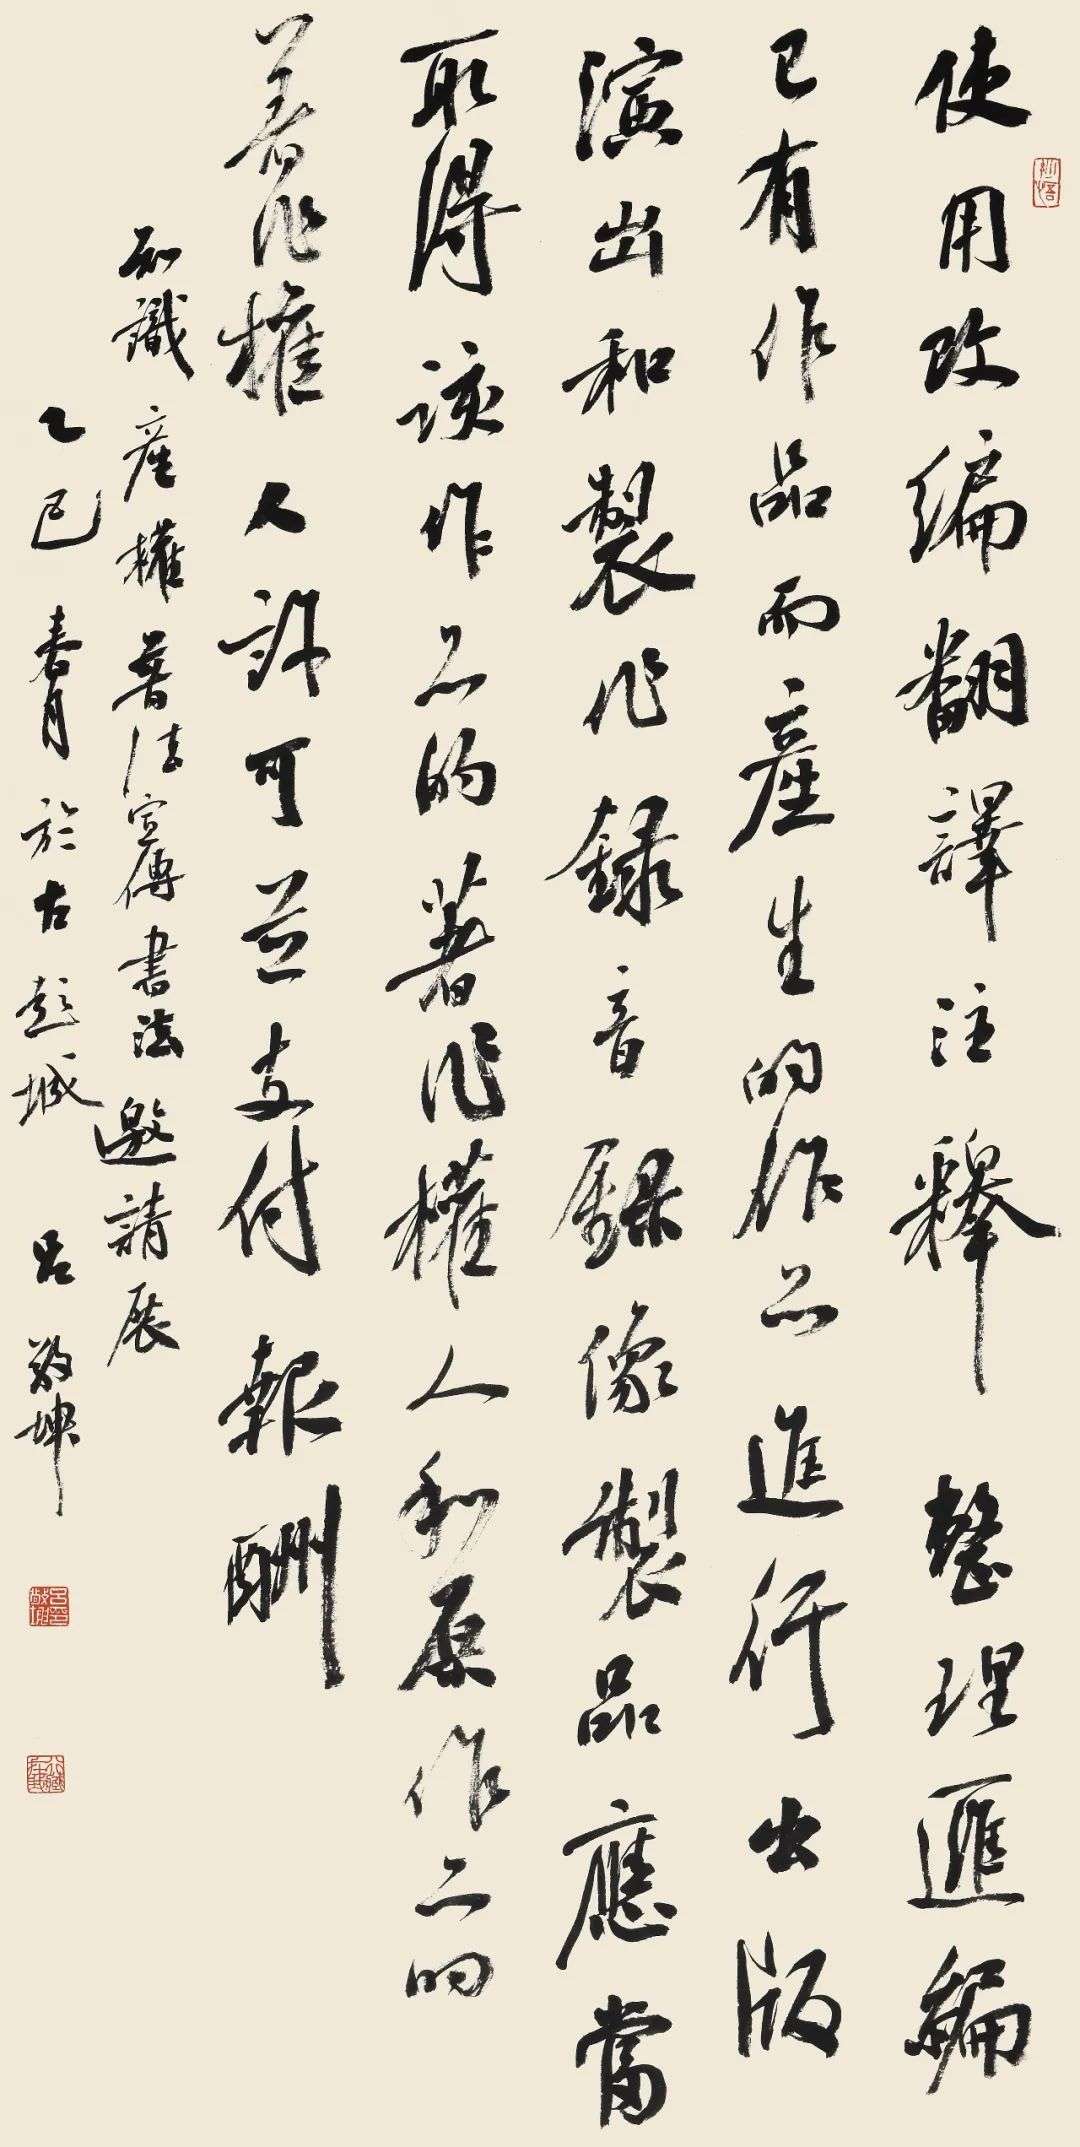 使用改編翻譯注釋整理匯編
已有作品而產生的作品進行出版
演出和製作録音録像製品應當
取得該作品的著作權人和原作品的
著作權人許可並支付報酬
知識產權普法宣傳書法邀請展
乙巳春月於古彭城呂敬坤